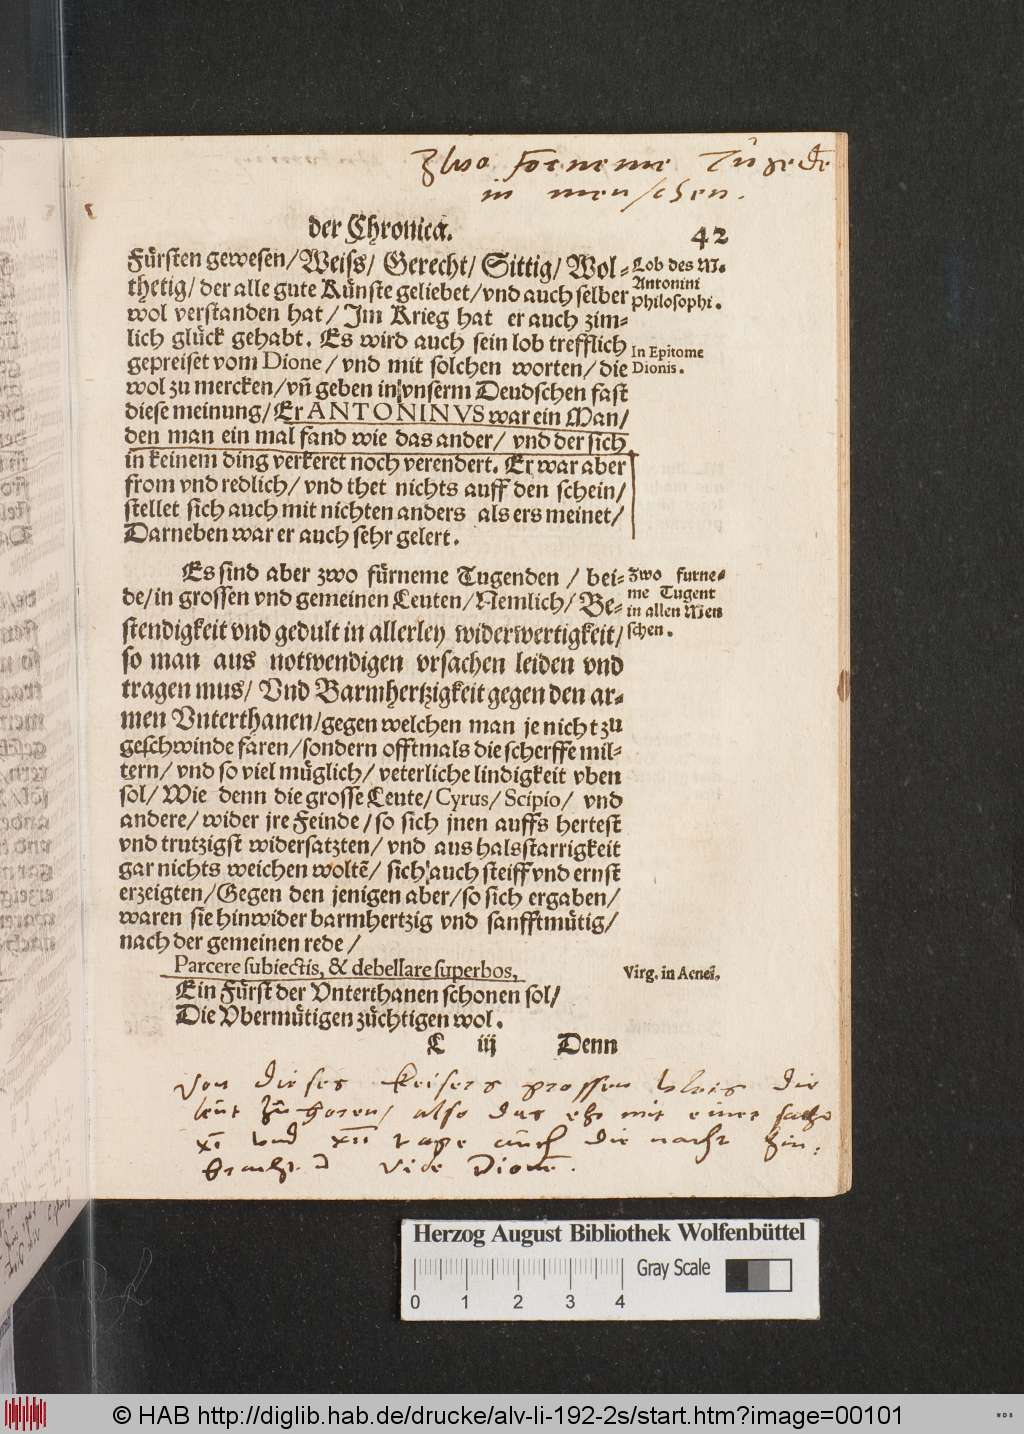 Zwo Forneme Tugede
in menschen.
der Chronica.
42
Fürsten gewesen/Weiss/ Gerecht/ Sittig/ Wol=
thetig/ der alle gute Künste geliebet/vnd auch selber
wol verstanden hat/ Im Krieg hat er auch zim=
lich glück gehabt. Es wird auch sein lob trefflich
gepreiset vom Dione/ vnd mit solchen worten/ die
wol zu mercken/vñ geben in vnserm Deudschen fast
diese meinung/ Er ANTONINVS war ein Man/
den man ein mal fand wie das ander/ vnd der sich
in keinem ding verkeret noch verendert. Er war aber
from vnd redlich/ vnd thet nichts auff den schein/
stellet sich auch mit nichten anders als ers meinet/
Darneben war er auch sehr gelert.
Lob des M.
Antonini
Philosophi.
In Epitome
Dionis.
Es sind aber zwo fürneme Tugenden / bei=
de/in grossen vnd gemeinen Leuten/Nemlich/ Be=
stendigkeit vnd gedult in allerley widerwertigkeit/
so man aus notwendigen vrsachen leiden vnd
tragen mus/ Vnd Barmhertzigkeit gegen den ar=
men Vnterthanen/gegen welchen man je nicht zu
geschwinde faren/sondern offtmals die scherffe mil=
tern/ vnd so viel müglich/ veterliche lindigkeit vben
sol/ Wie denn die grosse Leute/ Cyrus/ Scipio/ vnd
andere/ wider jre Feinde/so sich jnen auffs hertest
vnd trutzigst widersatzten/ vnd aus halsstarrigkeit
gar nichts weichen woltẽ/ sich auch steiff vnd ernst
erzeigten/Gegen den jenigen aber/so sich ergaben/
waren sie hinwider barmhertzig vnd sanfftmütig/
nach der gemeinen rede/
Zwo furne=
me Tugent
in allen Men
schen.
Parcere subiectis, & debellare superbos,
Virg. in Aenei.
Ein Fürst der Vnterthanen schonen sol/
Die Vbermütigen züchtigen wol.
L iij Denn
Von dieses Keisers grossen vleis die
leut zu horen/ also das ehr mit einer sache
xi vnd xii tage auch die nacht hin:
bracht. Vide Dione.
Herzog August Bibliothek Wolfenbüttel
Gray Scale
0 1 2 3 4
© HAB http://diglib.hab.de/drucke/alv-li-192-2s/start.htm?image=00101